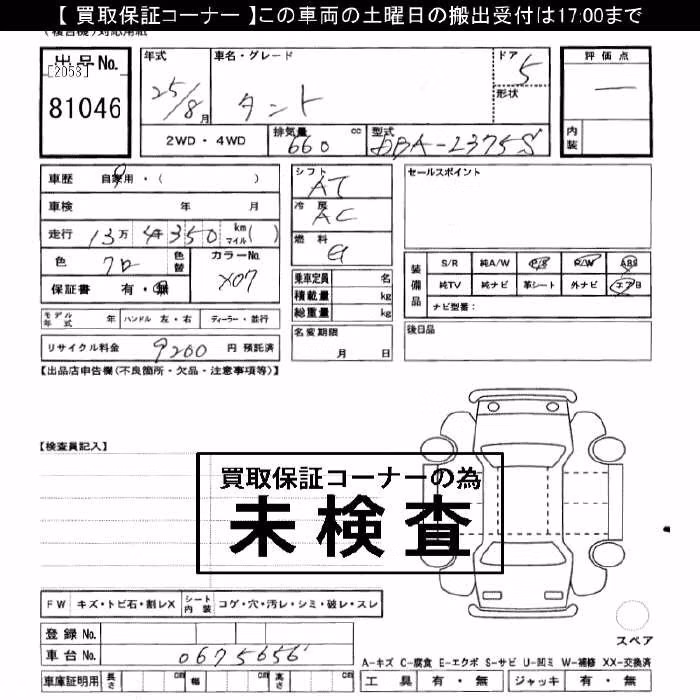 【 買取保証コーナー 】この車両の土曜日の搬出受付は17:00まで
出品No.
[2053]
81046
年式
25/8月
車名・グレード
タント
ドア
5
形状
評価点
―
内装
2WD・4WD
排気量 660 cc
型式 DBA-L375S
車歴 自家用・( )
車検 年 月
走行 13万 4千350 km マイル( )
色 クロ 色替
カラーNo. X07
保証書 有・無
シフト AT
冷房 AC
燃料 G
乗車定員 名
積載量 kg
総重量 kg
セールスポイント
装備品
S/R 純A/W P/S P/W ABS
純TV 純ナビ 革シート 外ナビ エアB
ナビ型番:
モデル年式 年 ハンドル 左・右 ディーラー・並行
名変期限
月 日
後日品
リサイクル料金 9200 円 預託済
【出品店申告欄(不良箇所・欠品・注意事項等)】
【検査員記入】
買取保証コーナーの為
未検査
FW キズ・トビ石・割レX シート内装 コゲ・穴・汚レ・シミ・破レ・スレ
登録No.
車台No. 0675656
車庫証明用 長さ cm 幅 cm 高さ cm
スペア
A-キズ C-腐食 E-エクボ S-サビ U-凹ミ W-補修 XX-交換済
工具 有・無 ジャッキ 有・無